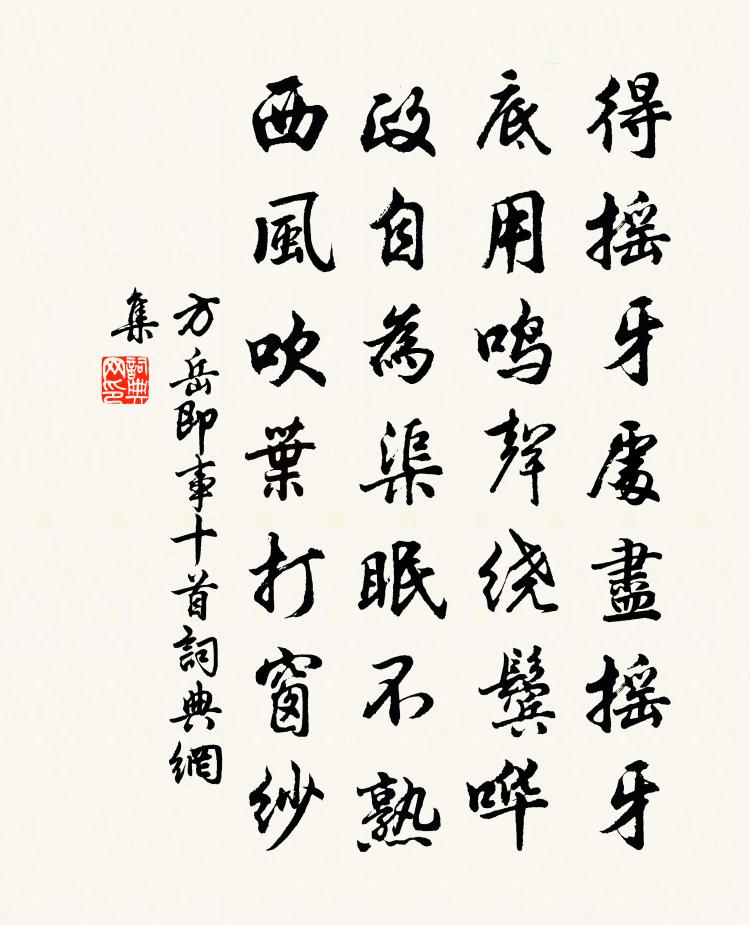 得摇牙處盡摇牙
底用鸣聲绕鬓哗
政自為渠眠不熟
西風吹葉打窗纱
方岳即事十首詞典網
集
詞典网印